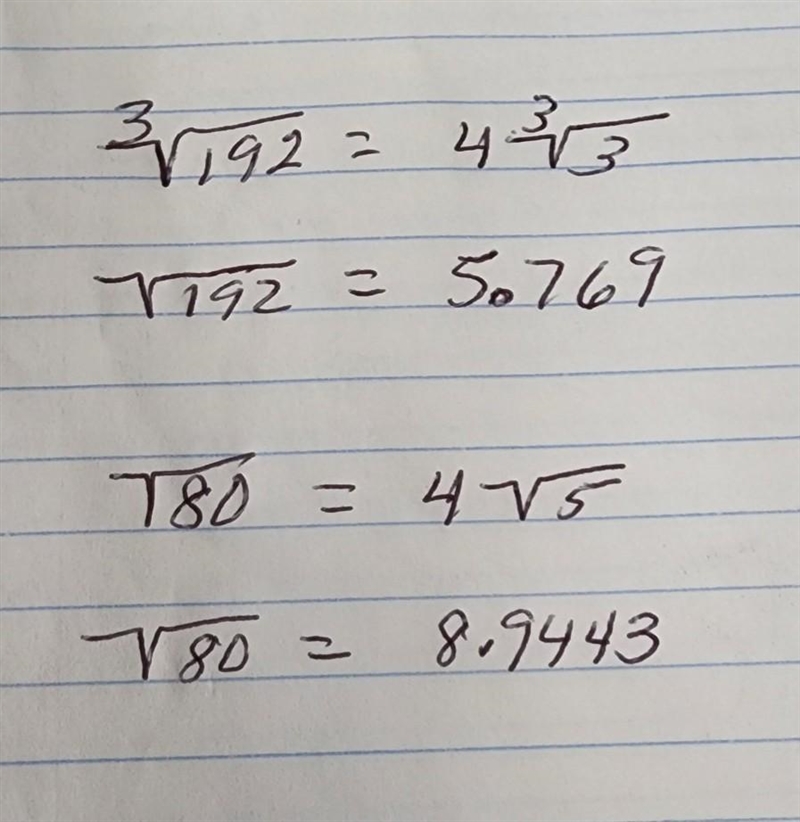 ∛192 = 4∛3
√192 = 5.769
√80 = 4√5
√80 = 8.9443